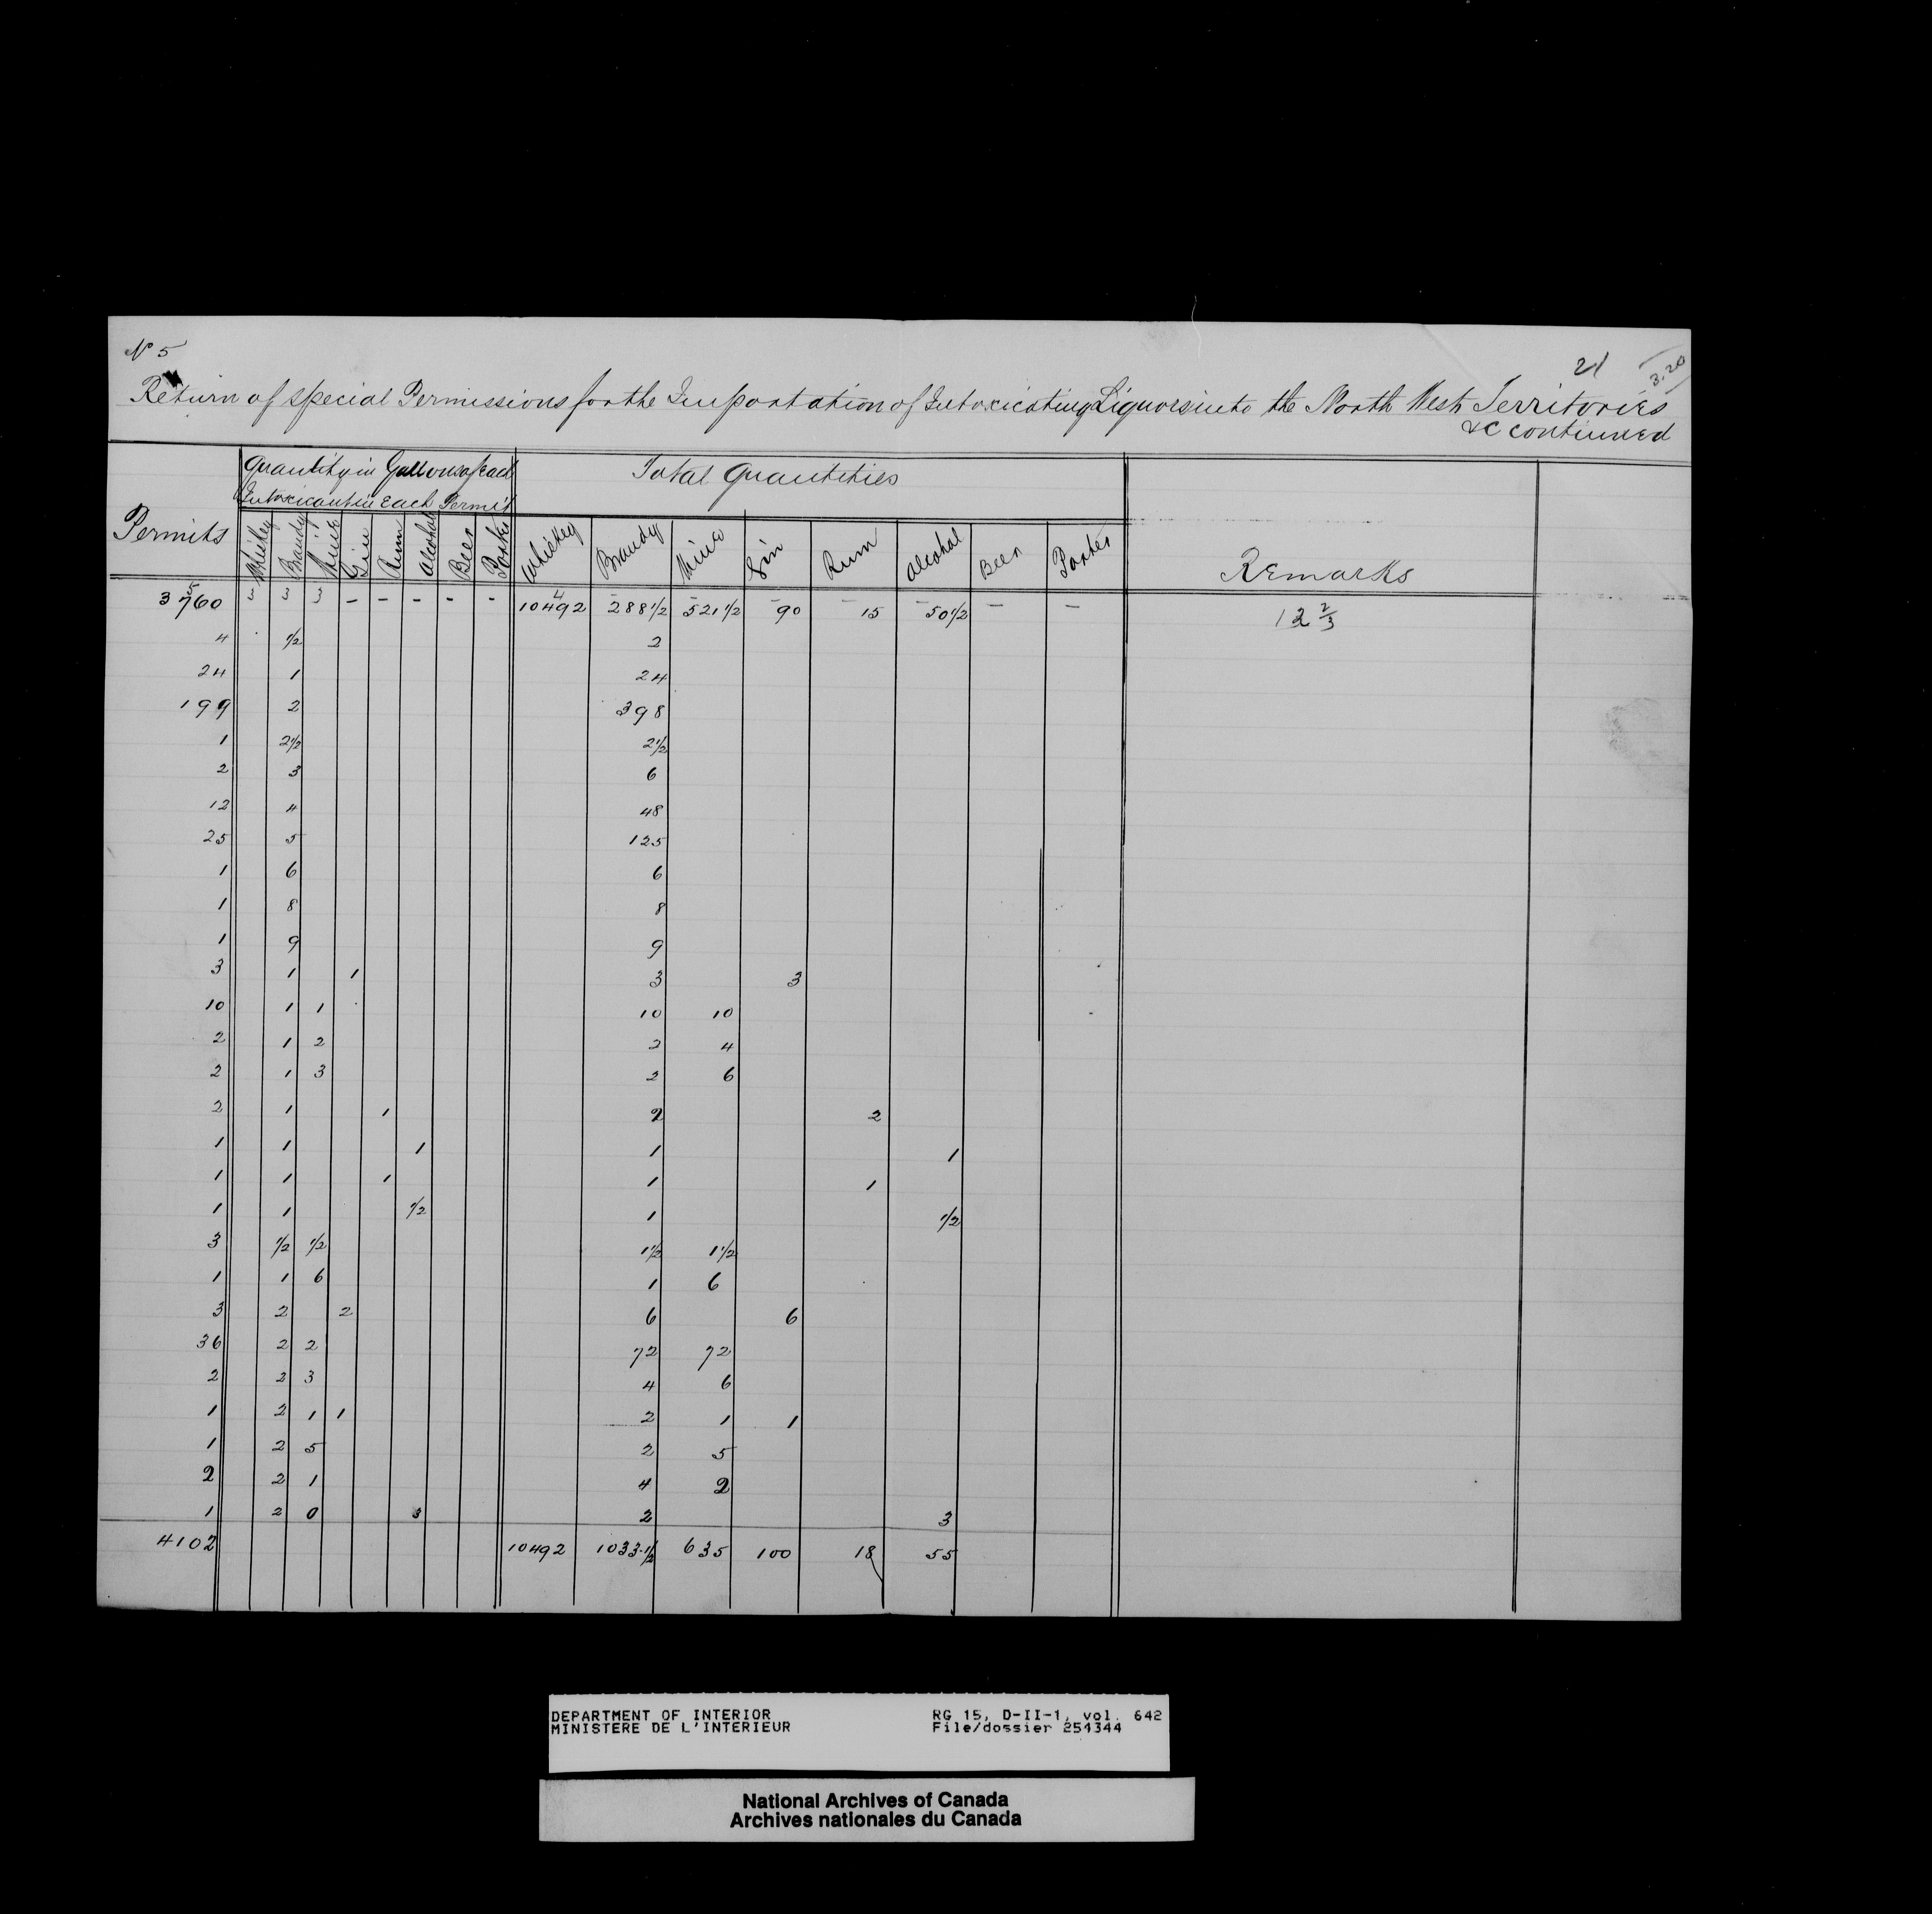 No 5
21
3.20
Return of special Permissions for the Importation of Intoxicating Liquors into the North West Territories
&c continued
Permits
Quantity in Gallons of Each
Intoxicant in Each Permit
Total Quantities
Remarks
Whiskey Brandy Wine Gin Rum Alcohol Beer Porter Whiskey Brandy Wine Gin Rum Alcohol Beer Porter
3760 - - - - - 10492 288 1/2 521 1/2 90 15 50 1/2 - - 12 2/3
4 1/2 2
24 1 24
199 2 398
1 2 1/2 2 1/2
2 3 6
12 4 48
25 5 125
1 6 6
1 8 8
1 9 9
3 1 1 3 3
10 1 1 10 10
2 1 2 2 4
2 1 3 2 6
2 1 1 2 2
1 1 1 1 1
1 1 1 1 1
1 1 1/2 1 1/2
3 1/2 1/2 1 1/2 1 1/2
1 1 6 1 6
3 2 2 6 6
36 2 2 72 72
2 2 3 4 6
1 2 1 1 2 1 1
1 2 5 2 5
2 2 1 4 2
1 2 0 3 2 3
4102 10492 1033 1/2 635 100 18 55
DEPARTMENT OF INTERIOR RG 15, D-II-1, vol. 642
MINISTERE DE L'INTERIEUR File/dossier 254344
National Archives of Canada
Archives nationales du Canada